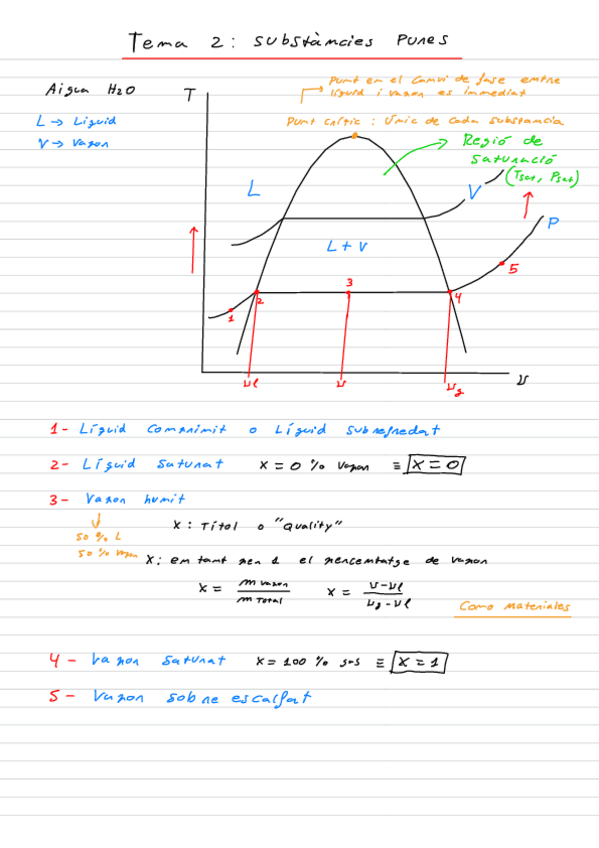 Tema 2: Substàncies Pures
Aigua H2O
L → Líquid
V → Vapor
T
Punt en el canvi de fase entre
líquid i vapor es immediat
Punt crític: Únic de cada substancia
Regió de
saturació
(Tsat, Psat)
L
V
P
L + V
1
2
3
4
5
vl
v
vg
v
1- Líquid Comprimit o Líquid Subrefredat
2- Líquid Saturat x = 0 % vapor ≡ x = 0
3- Vapor humit
50 % L
50 % vapor
x: Títol o "Quality"
x: en tant per 1 el percentatge de vapor
x = m vapor / m Total x = v - vl / vg - vl
Como materiales
4- Vapor Saturat x = 100 % gas ≡ x = 1
5- Vapor Sobre escalfat